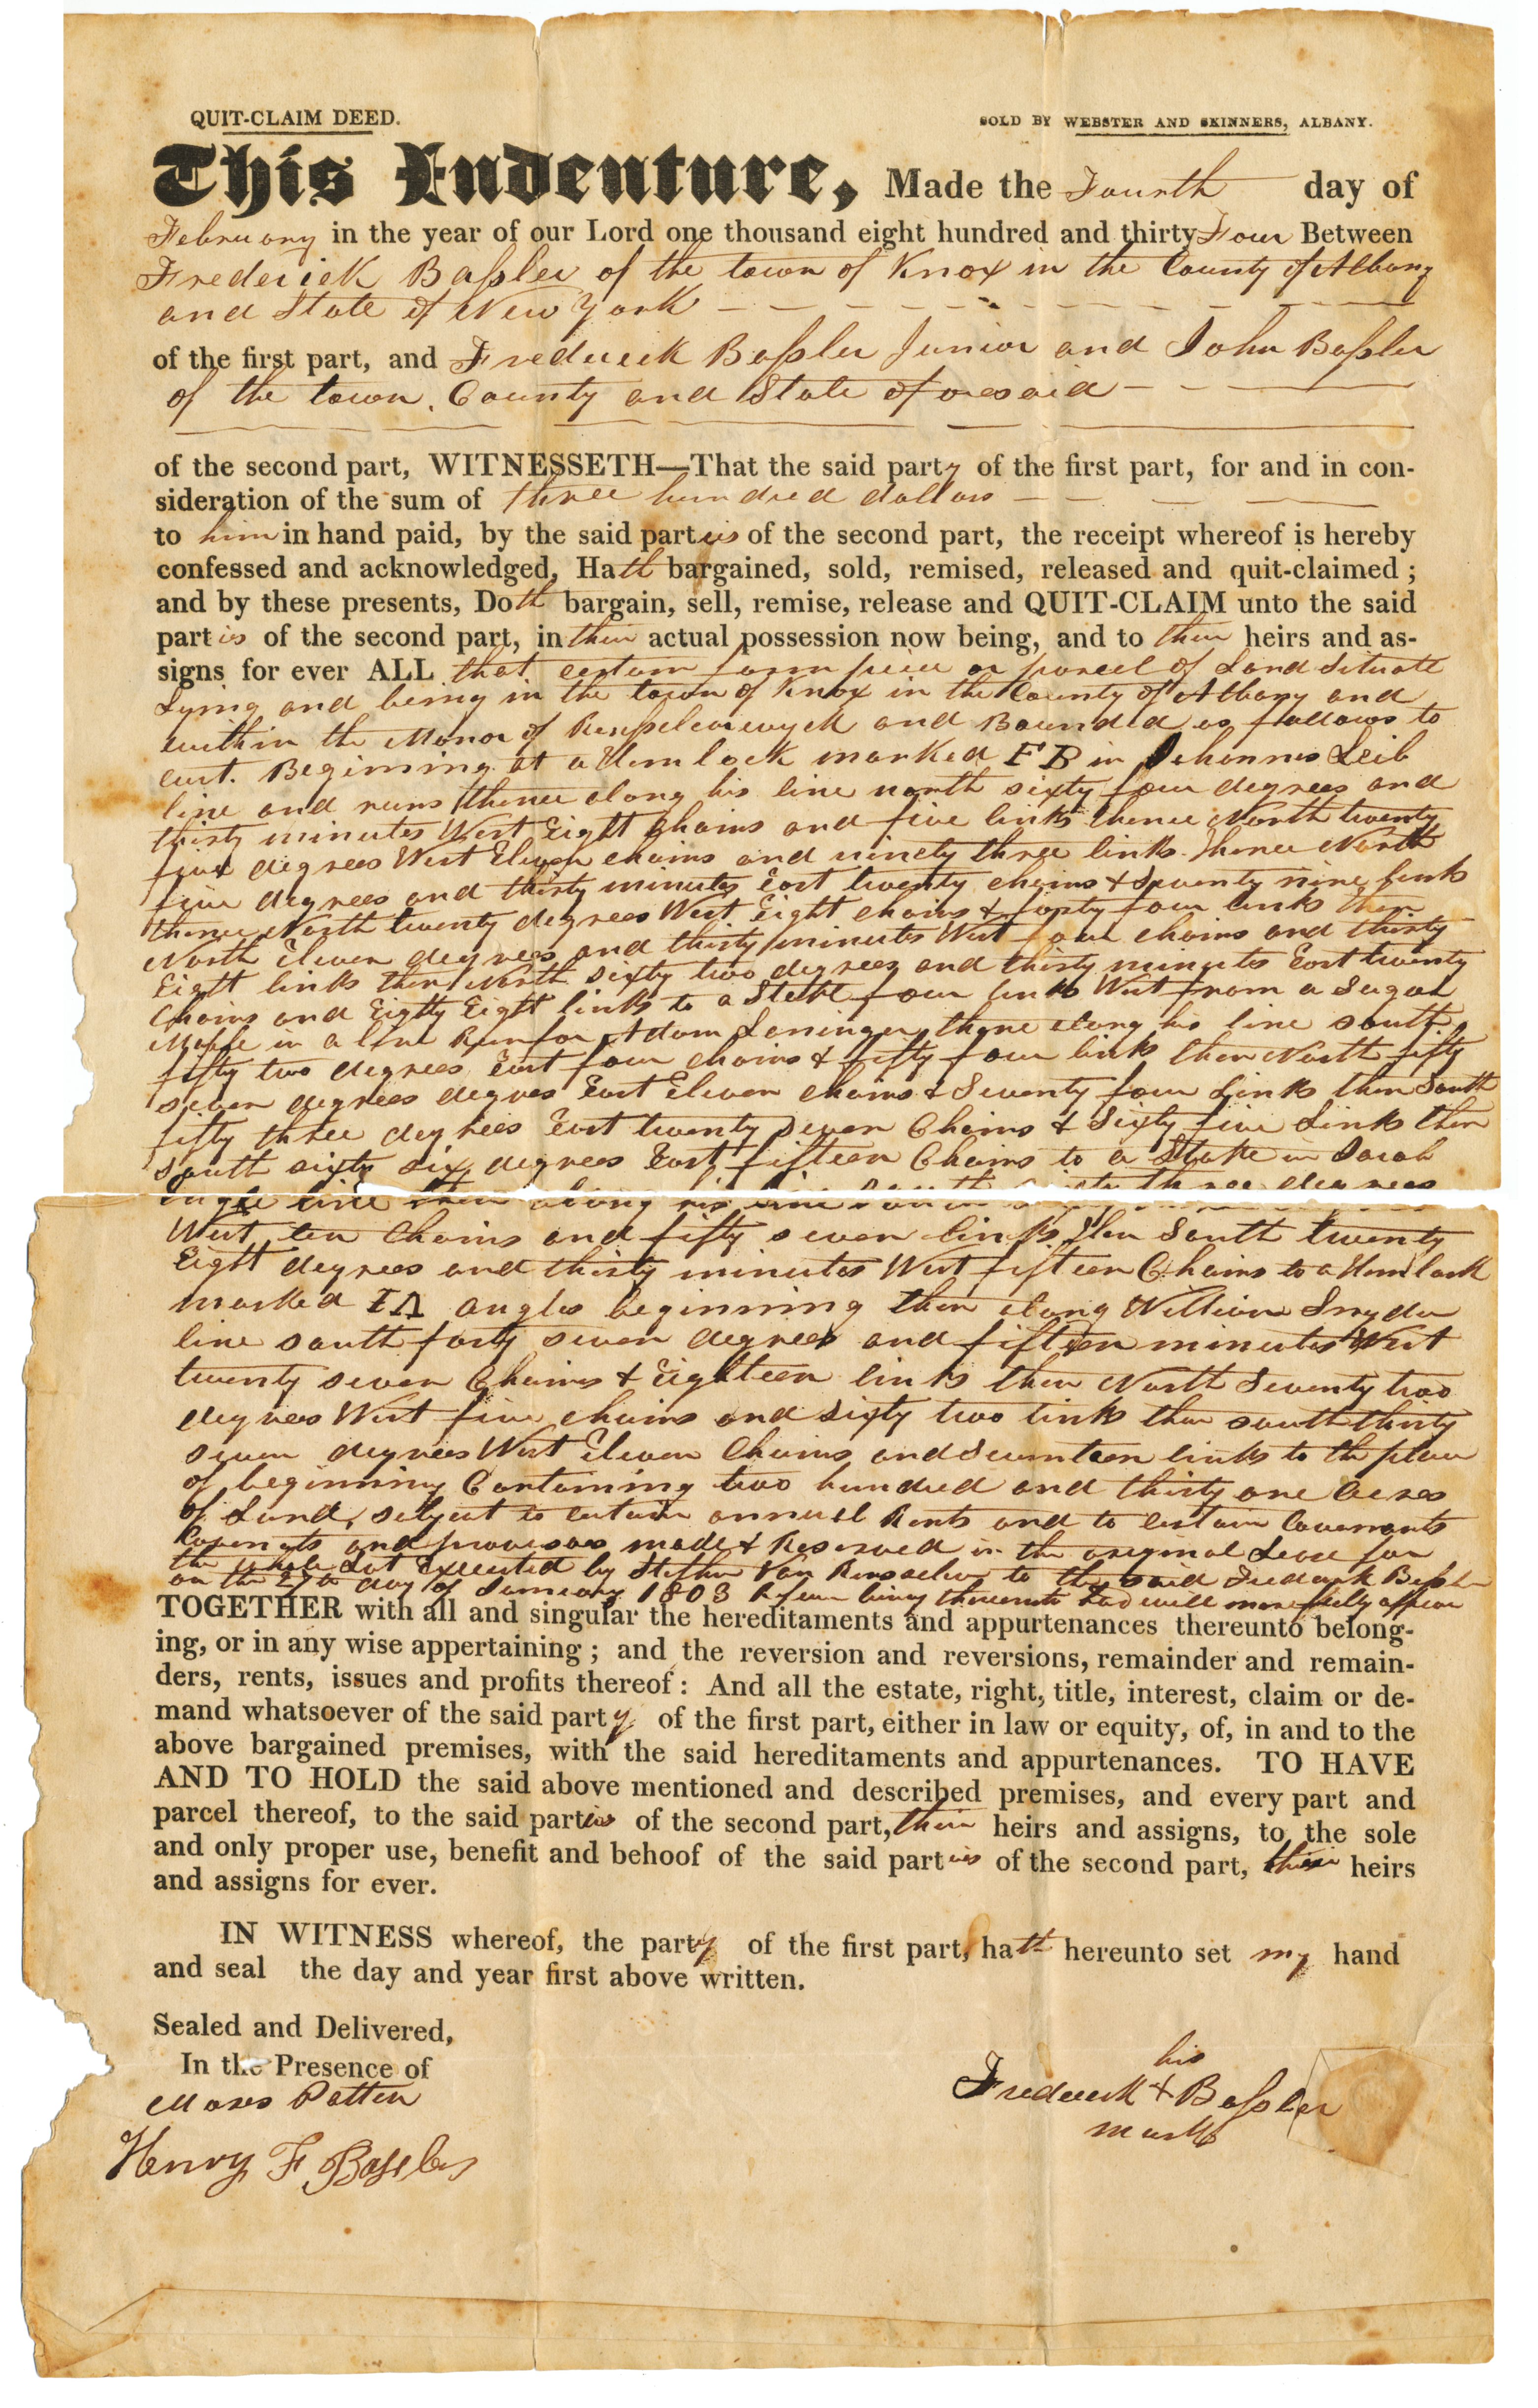 QUIT-CLAIM DEED.
SOLD BY WEBSTER AND SKINNERS, ALBANY.
This Indenture, Made the Fourth day of
February in the year of our Lord one thousand eight hundred and thirty Four Between
Frederick Baſsler of the town of Knox in the County of Albany
and State of New York
of the first part, and Frederick Baſsler Junior and John Baſsler
of the town, County and State aforesaid
of the second part, WITNESSETH—That the said party of the first part, for and in con-
sideration of the sum of three hundred dollars
to him in hand paid, by the said parties of the second part, the receipt whereof is hereby
confessed and acknowledged, Hath bargained, sold, remised, released and quit-claimed ;
and by these presents, Doth bargain, sell, remise, release and QUIT-CLAIM unto the said
parties of the second part, in their actual possession now being, and to their heirs and as-
signs for ever ALL that certain farm piece or parcel of Land Situate
Lying and being in the town of Knox in the County of Albany and
within the Manor of Renſselaerwyck and Bounded as follows to
wit. Beginning at a Hemlock marked FB in Johannes Leib
line and runs thence along his line north sixty four degrees and
thirty minutes West Eight Chains and five links thence North twenty
four degrees West Eleven chains and ninety three links. thence North
five degrees and thirty minutes East twenty chains & Seventy nine links
thence North twenty degrees West Eight chains & forty four links then
North Eleven degrees and thirty minutes West four chains and thirty
Eight links then North sixty two degrees and thirty minutes East twenty
Chains and Eighty Eight links to a Stake four links West from a Sugar
Maple in a line Run for Adam thence along his line south
fifty two degrees East four chains & fifty four links then North fifty
seven degrees degrees East Eleven chains & Seventy four Links then South
fifty three degrees East twenty seven Chains & Sixty five Links then
South sixty six degrees East fifteen Chains to a Stake in Jacob
line then along his line South three degrees
West ten Chains and fifty seven links then South twenty
Eight degrees and thirty minutes West fifteen Chains to a Hemlock
marked angles beginning then along William Snyder
line south forty seven degrees and fifteen minutes West
twenty seven Chains & Eighteen links then North Seventy two
degrees West five chains and sixty two links then south thirty
seven degrees West Eleven Chains and Seventeen links to the place
of beginning Containing two hundred and thirty one Acres
of Land, subject to certain annual Rents and to certain Covenants
and provisoes made & Reserved in the original Lease for
the whole Lot Executed by Stephen Van Rensselaer to the said Frederick Baſsler
on the 27th day of January 1803 being thereunto had will more fully appear
TOGETHER with all and singular the hereditaments and appurtenances thereunto belong-
ing, or in any wise appertaining ; and the reversion and reversions, remainder and remain-
ders, rents, issues and profits thereof : And all the estate, right, title, interest, claim or de-
mand whatsoever of the said party of the first part, either in law or equity, of, in and to the
above bargained premises, with the said hereditaments and appurtenances. TO HAVE
AND TO HOLD the said above mentioned and described premises, and every part and
parcel thereof, to the said parties of the second part, their heirs and assigns, to the sole
and only proper use, benefit and behoof of the said parties of the second part, their heirs
and assigns for ever.
IN WITNESS whereof, the party of the first part, hath hereunto set my hand
and seal the day and year first above written.
Sealed and Delivered,
In the Presence of
Moses Patten
Henry F Baſsler
his
Frederick + Baſsler
mark